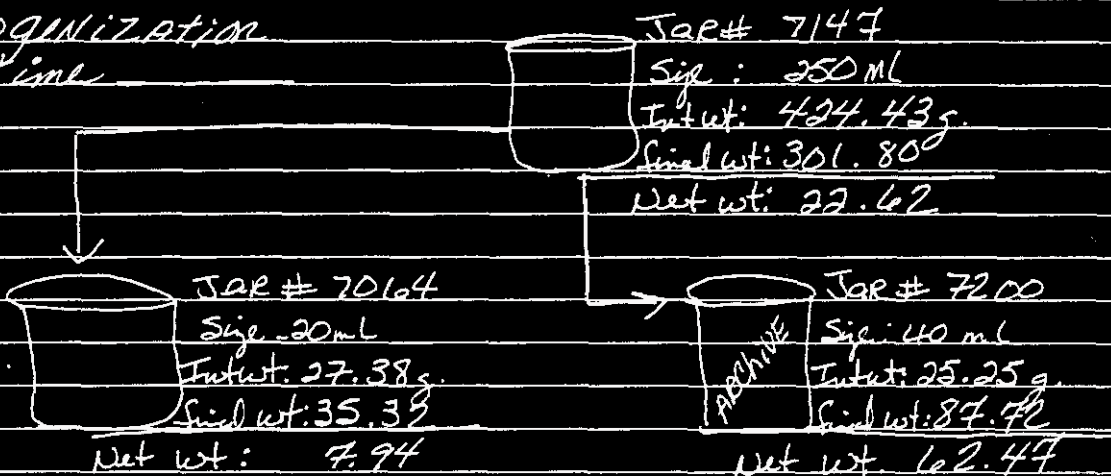 ogenization
ime
Jar# 7147
Size : 250 ml
Int wt: 424.43 g.
final wt: 301.80
Net wt: 22.62
JAR # 7064
Size - 20mL
Int wt: 27.38 g.
final wt: 35.32
Net wt: 7.94
JAR # 7200
Size: 40 ml
Int wt: 25.25 g.
final wt: 87.72
Net wt. 62.47
ARChiVE